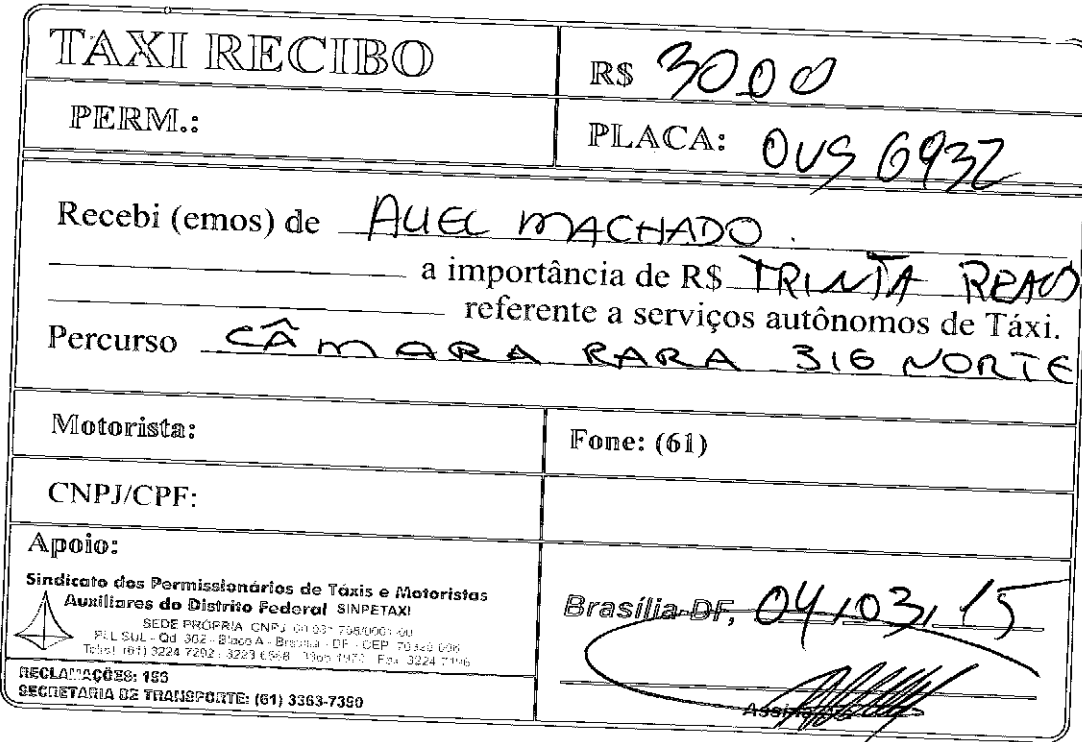 TAXI RECIBO
R$ 3000
PERM.:
PLACA: OVS 6932
Recebi (emos) de AUEL MACHADO.
a importância de R$ TRINTA REAIS
referente a serviços autônomos de Táxi.
Percurso CÂMARA PARA 316 NORTE
Motorista:
Fone: (61)
CNPJ/CPF:
Apoio:
Sindicato dos Permissionários de Táxis e Motoristas
Auxiliares do Distrito Federal SINPETAXI
SEDE PRÓPRIA CNPJ
SUL - Qd 302 - Bloco A - Brasília - DF - CEP
(61) 3224 7292 Fax 3224 7196
RECLAMAÇÕES: 156
SECRETARIA DE TRANSPORTE: (61) 3363-7350
Brasília-DF, 04/03/15